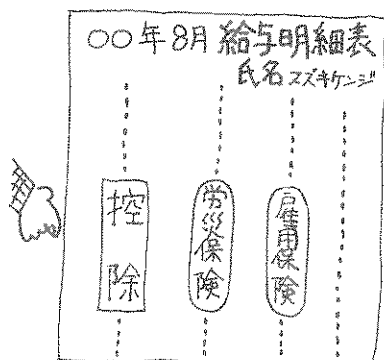 〇〇年8月 給与明細表
氏名 スズキケンジ
控除
労災保険
雇用保険